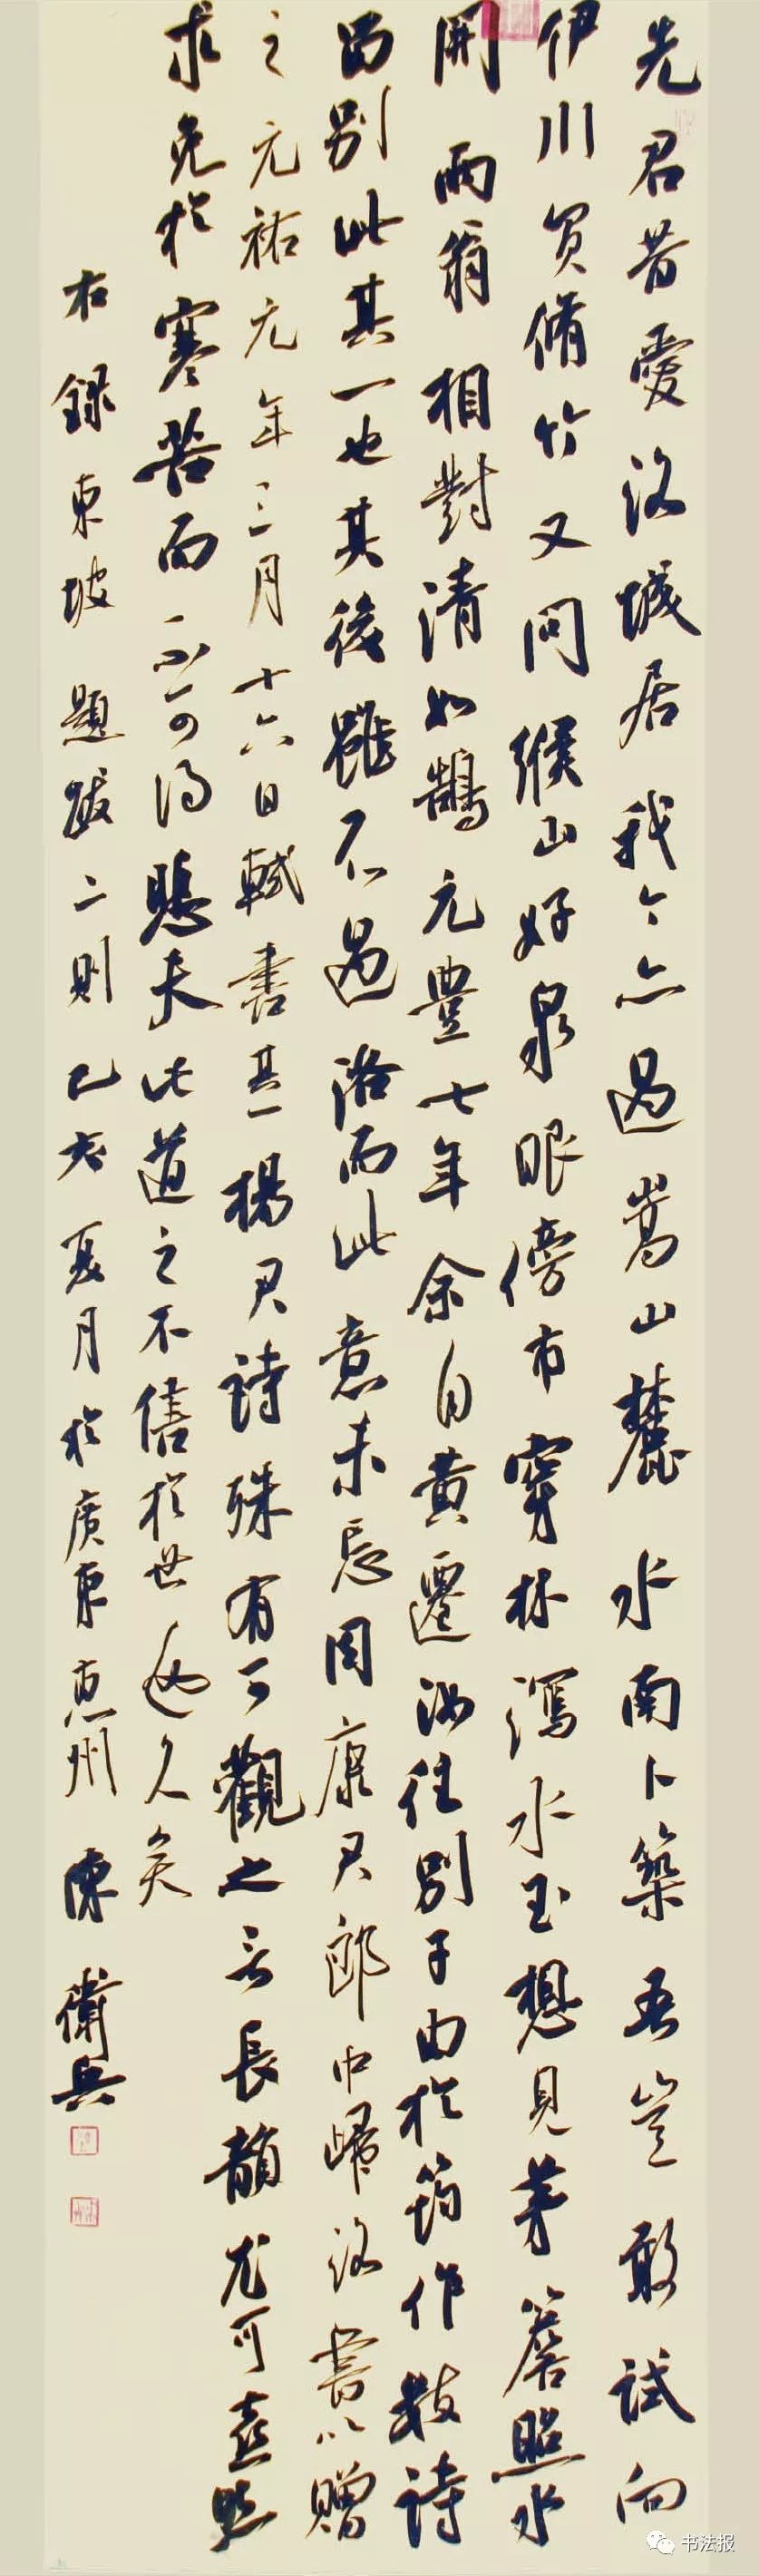 先君昔愛洛城居我今亦過嵩山麓水南卜築吾豈敢試向
伊川買脩竹又問緱山好泉眼傍市穿林瀉水玉想見茅簷照水
開兩翁相對清如鵠元豊七年余自黃遷汝往別子由於筠作數詩
留別此其一也其後雖不過洛而此意未忘因康君郎中歸洛書以贈
之元祐元年三月十六日軾書其一楊君詩殊有可觀之言長韻尤可喜然
求免於寒苦而不可得悲夫此道之不售於世也久矣
右錄東坡題跋二則己亥夏月於廣東惠州陳衛兵
书法报